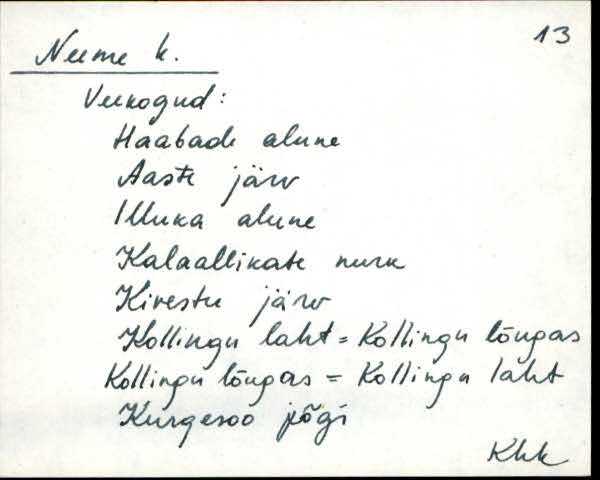 13
Neeme k.
Veekogud:
Haabade alune
Aaste järv
Illuka alune
Kalaallikate nurk
Kirestu järv
Kollingu laht = Kollingu lõugas
Kollingu lõugas = Kollingu laht
Kurgesoo jõgi
Khk